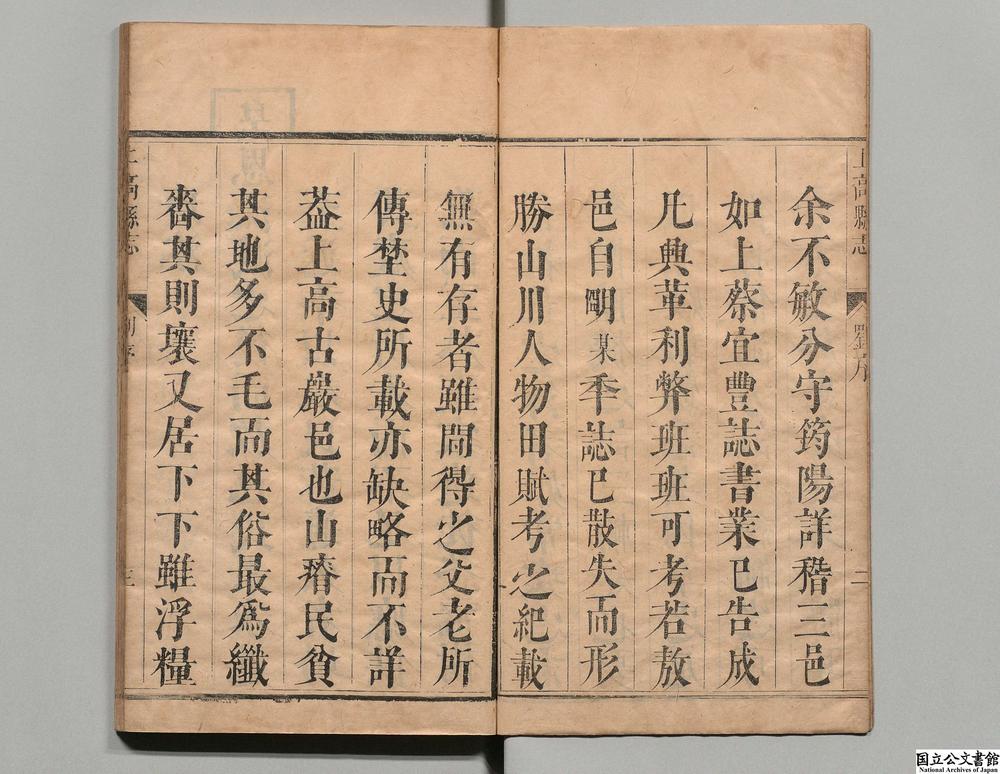 余不敏分守筠陽詳稽三邑
如上蔡宜豐誌書業已告成
凡興革利弊班班可考若敖
邑自明某季誌已散失而形
勝山川人物田賦考之紀載
無有存者雖間得之父老所
傳埜史所載亦缺略而不詳
葢上高古巖邑也山瘠民貧
其地多不毛而其俗最爲纖
嗇其則壤又居下下雖浮糧
上高縣志
二
上高縣志
三
国立公文書館
National Archives of Japan